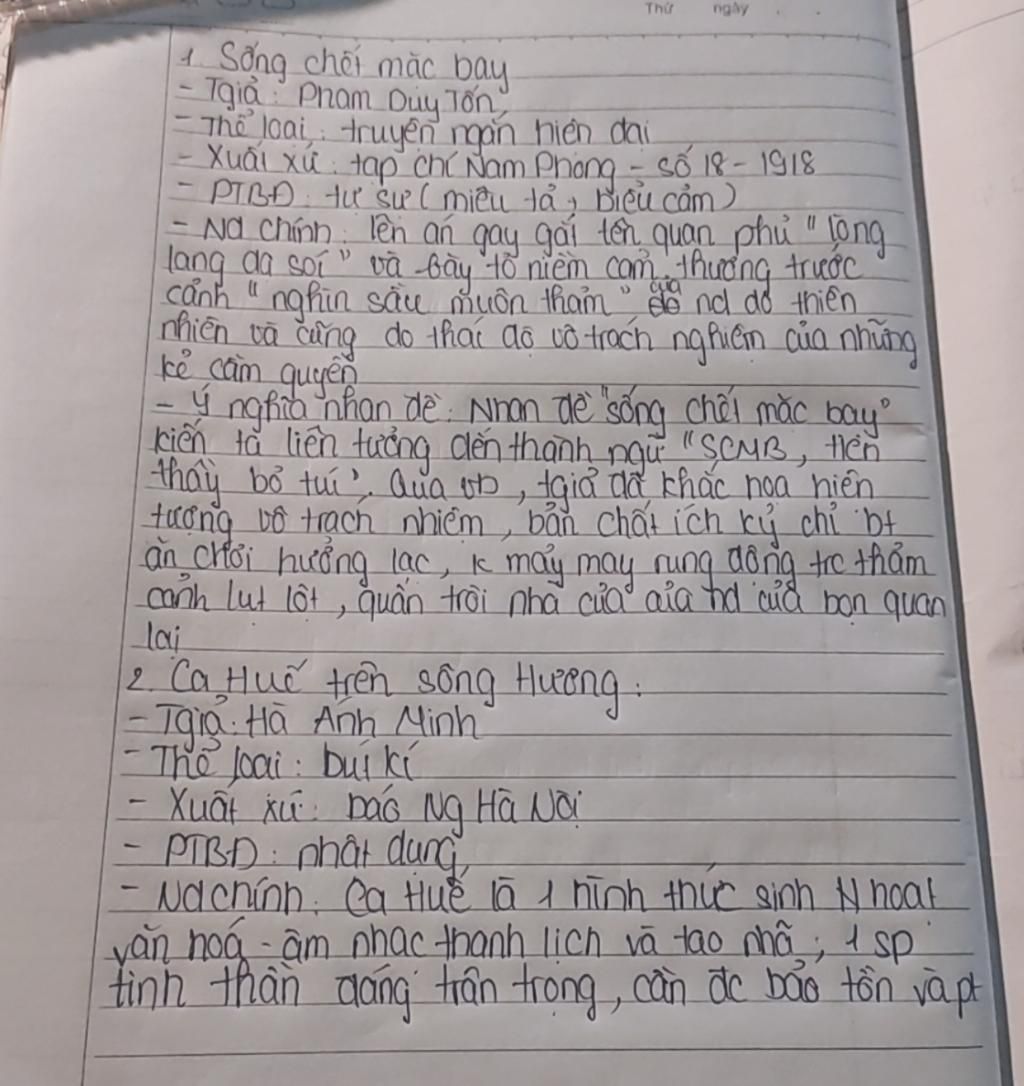 Thứ ngày
1. Sống chết mặc bay
- Tgiả: Phạm Duy Tốn
- Thể loại: truyện ngắn hiện đại
- Xuất xứ: tạp chí Nam Phong - số 18 - 1918
- PTBĐ: tự sự (miêu tả, biểu cảm)
- Nd chính: lên án gay gắt tên quan phủ "lòng
lang dạ sói" và bày tỏ niềm cảm thương trước
cảnh "nghìn sầu muôn thảm" của nd do thiên
nhiên và cũng do thái độ vô trách nghiệm của những
kẻ cầm quyền
- Ý nghĩa nhan đề: Nhan đề "sống chết mặc bay"
kiến ta liên tưởng đến thành ngữ "SCMB, tiền
thầy bỏ túi". Qua vb, tgiả đã khắc hoạ hiện
tượng vô trách nhiệm, bản chất ích kỷ chỉ bt
ăn chơi hưởng lạc, k mảy may rung động trc thảm
cảnh lụt lột, quấn trôi nhà cửa của nd của bọn quan
lại
2. Ca Huế trên sông Hương:
- Tgiả: Hà Ánh Minh
- Thể loại: bút kí
- Xuất xứ: báo Ng Hà Nội
- PTBĐ: nhật dụng
- Nd chính: Ca Huế là 1 hình thức sinh hoạt
văn hoá - âm nhạc thanh lịch và tao nhã; 1 sp
tinh thần đáng trân trọng, cần đc bảo tồn và pt